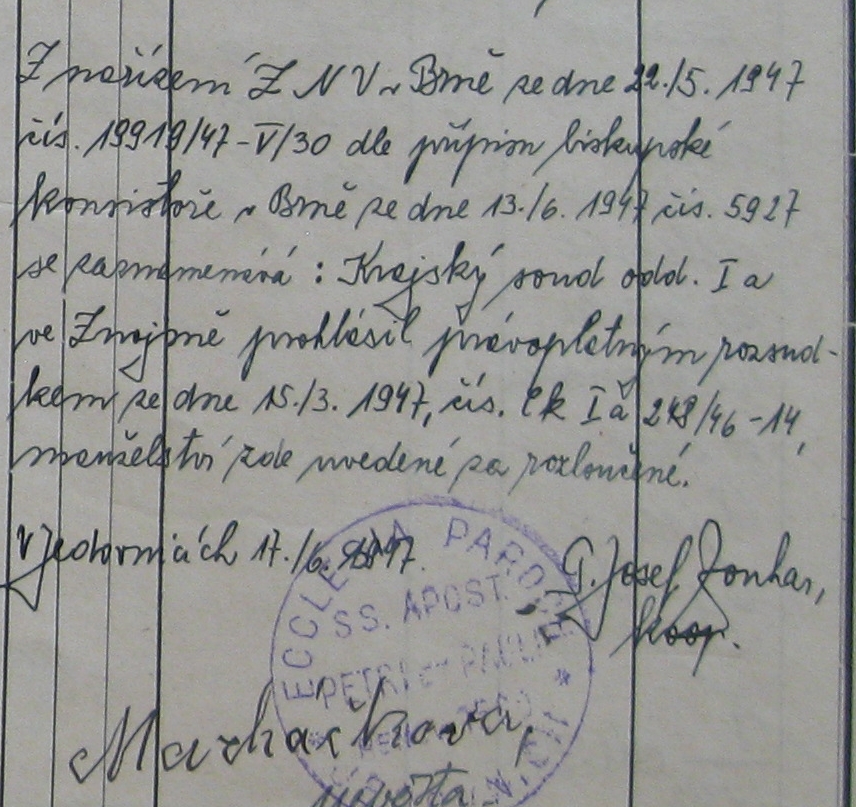 Z nařízení Z N V v Brně ze dne 22./5. 1947
čís. 19919/47-V/30 dle přípisu biskupské
konsistoře v Brně ze dne 13./6. 1947 čís. 5927
se zaznamenává : Krajský soud odd. I a
ve Znojmě prohlásil právoplatným rozsud-
kem ze dne 15./3. 1947, čís. Ck I a 248/46-14,
manželství zde uvedené za rozloučené.
V Jedovnicích 17./6. 1947.
P. Josef Zouhar,
koop.
ECCLESIA PAROCH
SS. APOST.
PETRI et PAULI